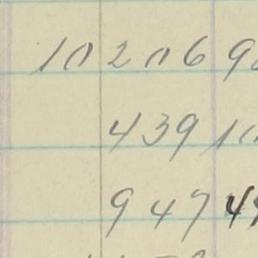 102069
43910
94749